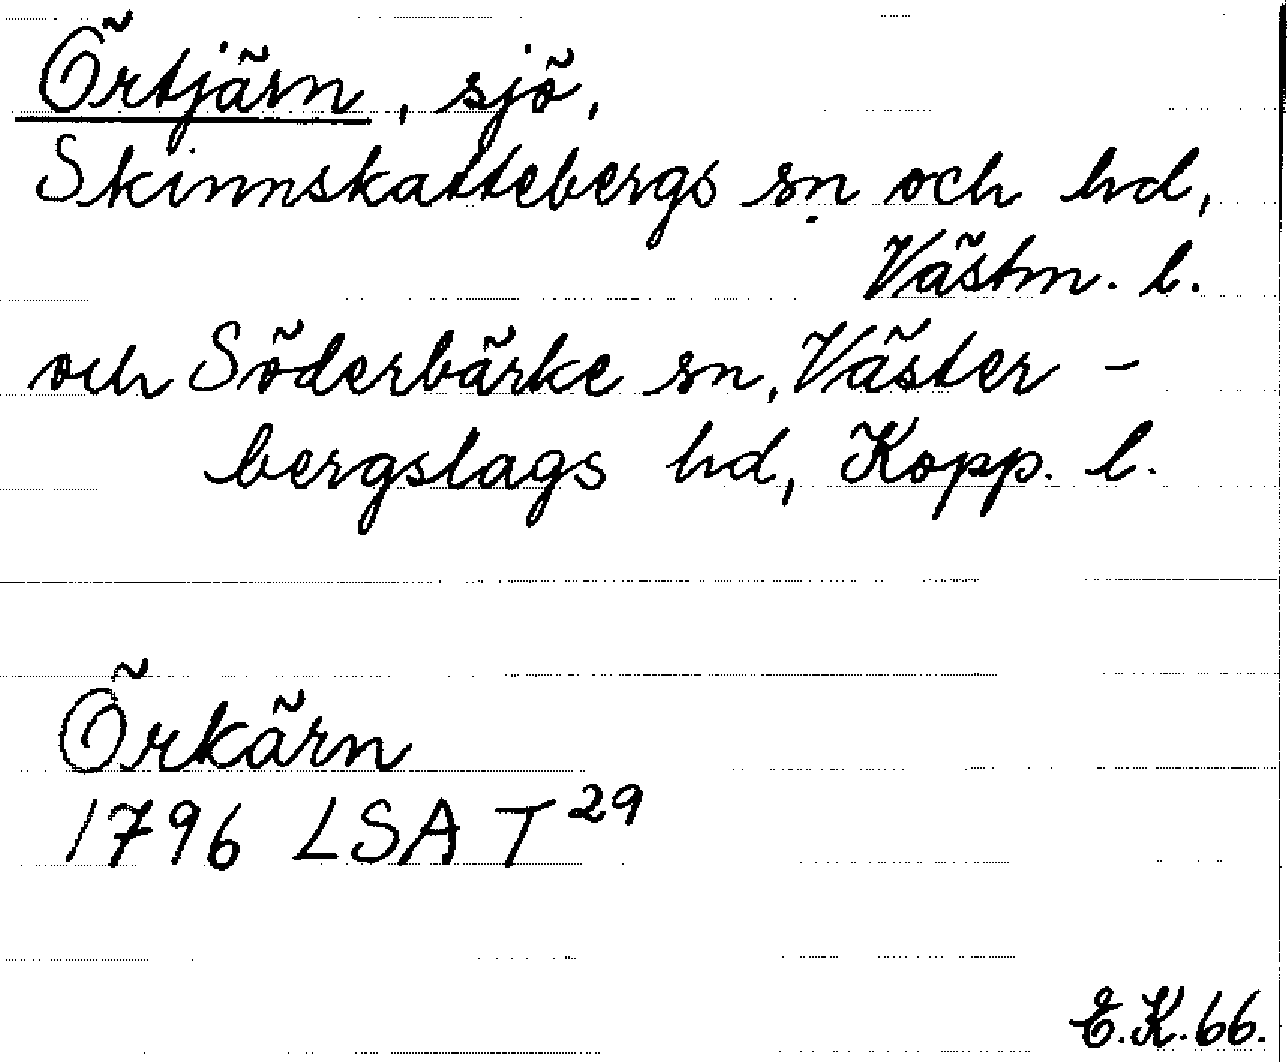 Örtjärn, sjö,
Skinnskattebergs sn och hd,
Västm. l.
och Söderbärke sn, Väster-
bergslags hd, Kopp. l.
Örkärn
1796 LSA T 29
E.K. 66.